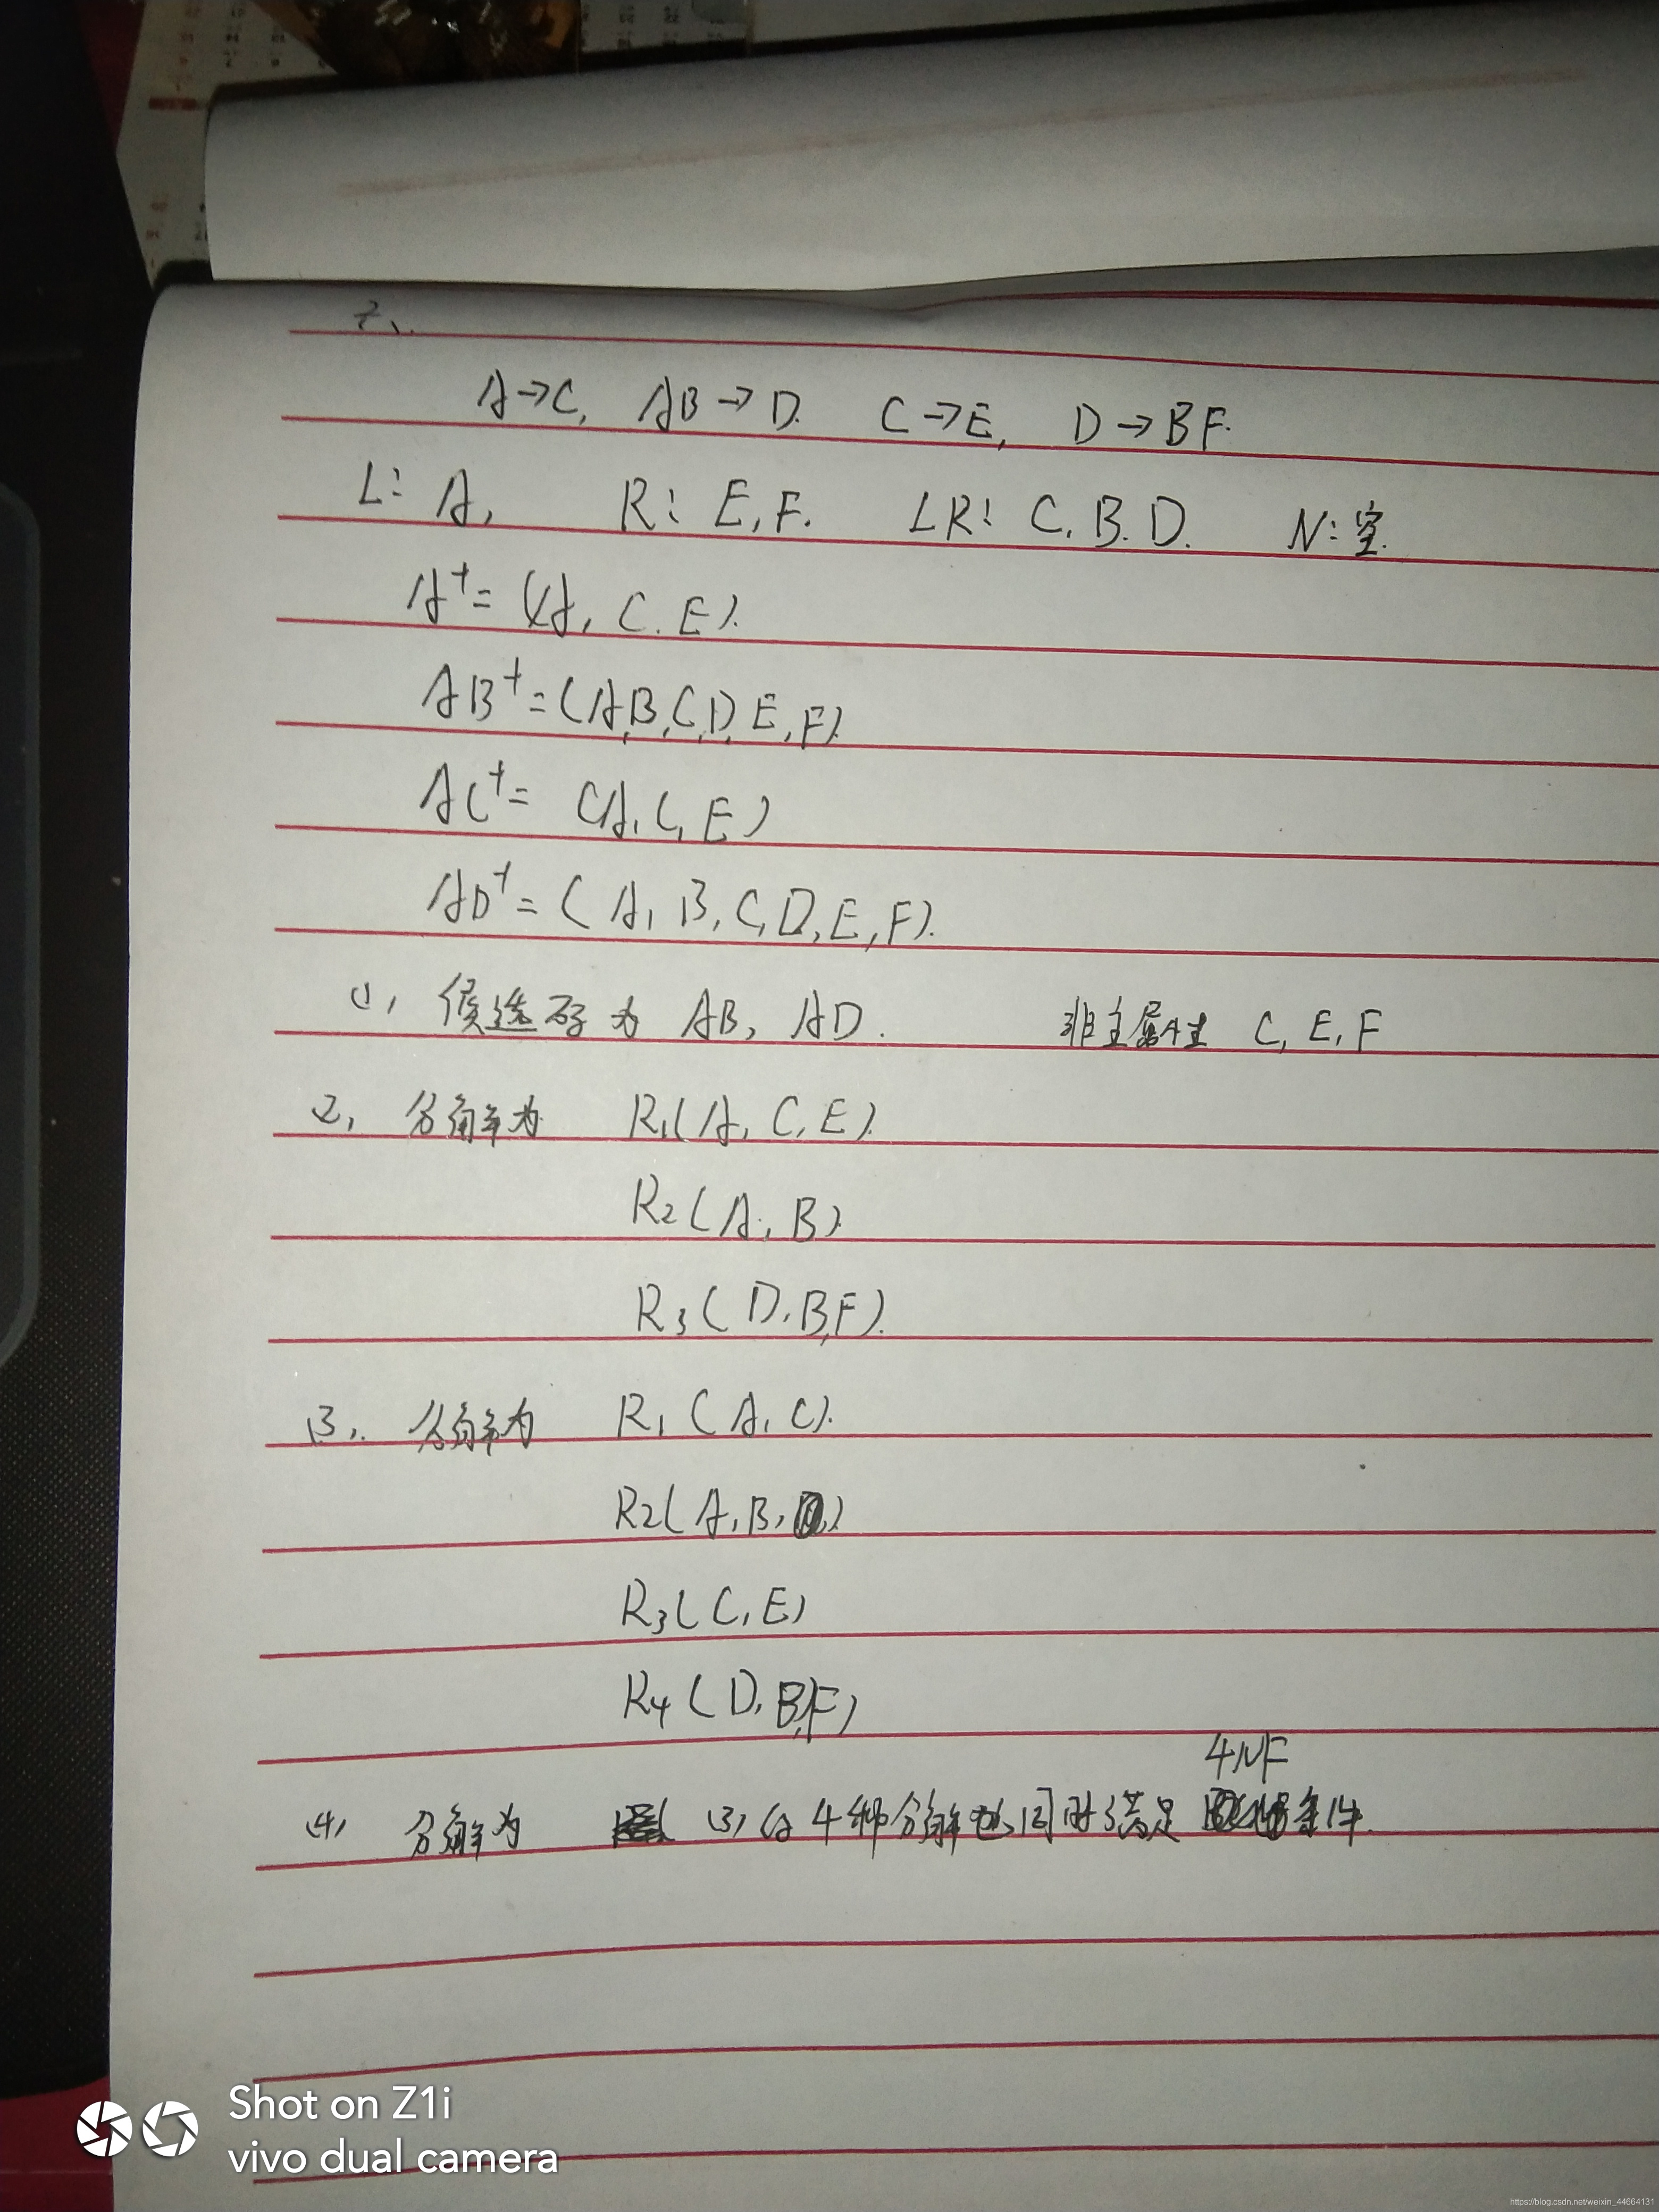 二、
A→C, AB→D. C→E, D→BF.
L: A, R: E,F. LR: C.B.D. N:空.
A⁺=(A, C.E).
AB⁺=(A,B,C,D,E,F).
AC⁺= (A,C,E)
AD⁺=(A,B,C,D,E,F).
(1), 候选码为 AB, AD. 非主属性 C,E,F
(2), 分解为 R₁(A,C,E).
R₂(A,B).
R₃(D.B,F).
(3), 分解为 R₁(A,C).
R₂(A,B,)
R₃(C,E)
R₄(D,B,F)
4NF
(4) 分解为 (3) 的4种分解也同时满足 条件.
Shot on Z1i
vivo dual camera
https://blog.csdn.net/weixin_44664131